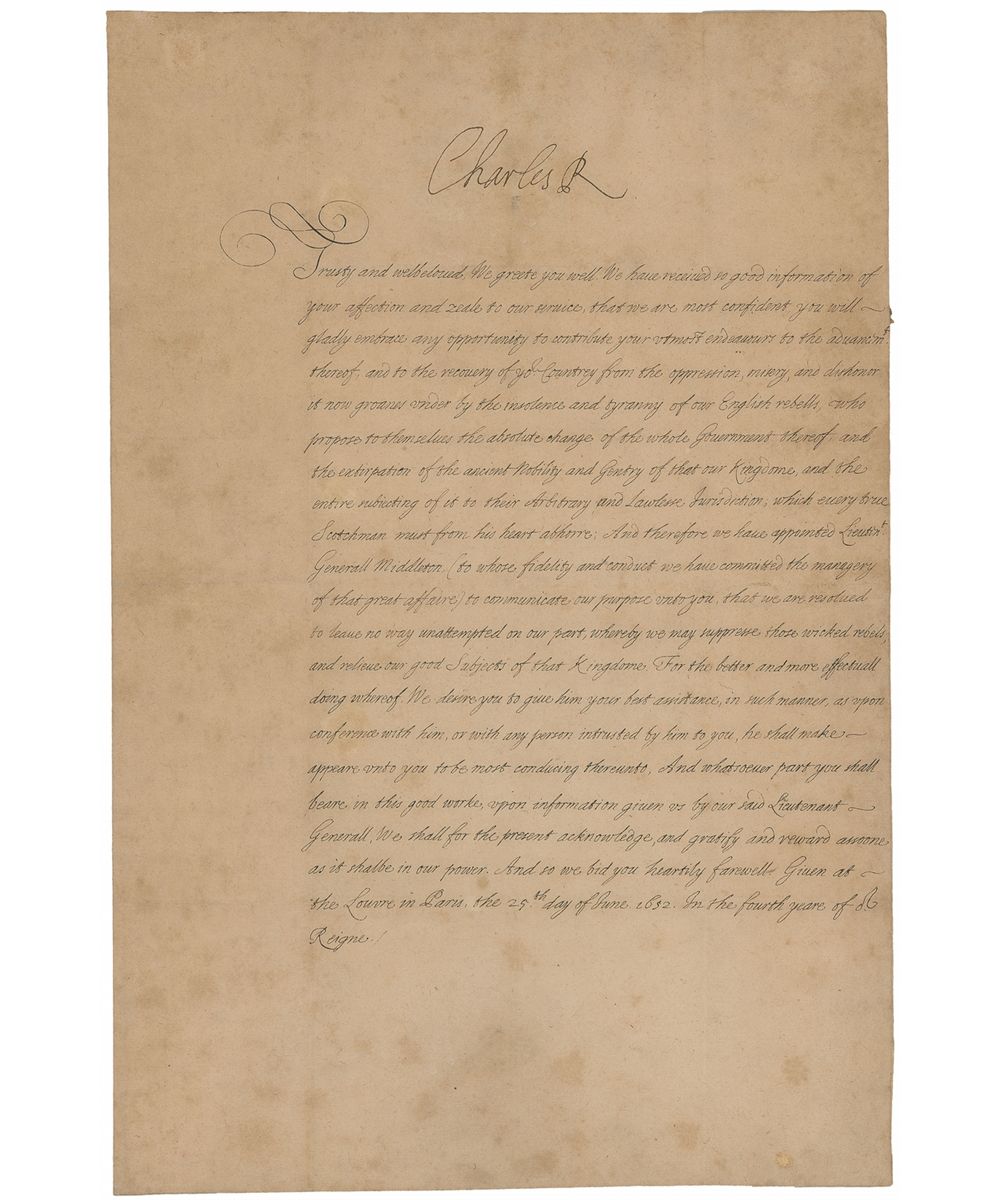 Charles R
Trusty and welbeloued, We greete you well. We have receiued so good information of
your affection and zeale to our seruice, that we are most confident you will
gladly embrace any opportunity to contribute your vtmost endeavours to the advancinᵗ
thereof, and to the recovery of yoʳ Countrey from the oppression, misery, and dishonor
it now groanes vnder by the insolence and tyranny of our English rebells, who
propose to themselues the absolute change of the whole Government thereof, and
the extirpation of the ancient Nobility and Gentry of that our Kingdome, and the
entire subiecting of it to their Arbitrary and Lawlesse Jurisdiction; which euery true
Scotchman must from his heart abhorre; And therefore we have appointed Lieutenᵗ
Generall Middleton, (to whose fidelity and conduct we have committed the managery
of that great affaire) to communicate our purpose vnto you, that we are resolued
to leaue no way unattempted on our part, whereby we may suppresse those wicked rebels,
and relieue our good Subjects of that Kingdome. For the better and more effectuall
doing whereof. We desire you to give him your best assistance, in such manner, as vpon
conference with him, or with any person intrusted by him to you, he shall make
appeare vnto you to be most conducing thereunto, And whatsoeuer part you shall
beare in this good worke, vpon information giuen vs by our said Lieutenant
Generall, We shall for the present acknowledge, and gratify and reward assoone
as it shalbe in our power. And so we bid you heartily farewell. Giuen at
the Louvre in Paris, the 25.ᵗʰ day of June 1652. In the fourth yeare of oʳ
Reigne./